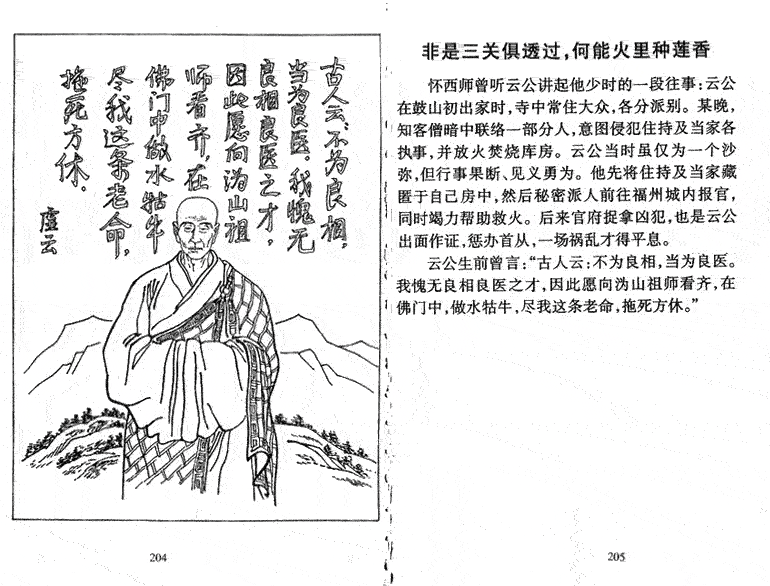 古人云：不为良相，
当为良医。我愧无
良相良医之才，
因此愿向沩山祖
师看齐，在
佛门中做水牯牛
尽我这条老命，
拖死方休．
虚云
204
非是三关俱透过，何能火里种莲香
怀西师曾听云公讲起他少时的一段往事：云公
在鼓山初出家时，寺中常住大众，各分派别。某晚，
知客僧暗中联络一部分人，意图侵犯住持及当家各
执事，并放火焚烧库房。云公当时虽仅为一个沙
弥，但行事果断、见义勇为。他先将住持及当家藏
匿于自己房中，然后秘密派人前往福州城内报官，
同时竭力帮助救火。后来官府捉拿凶犯，也是云公
出面作证，惩办首从，一场祸乱才得平息。
云公生前曾言：“古人云：不为良相，当为良医。
我愧无良相良医之才，因此愿向沩山祖师看齐，在
佛门中，做水牯牛，尽我这条老命，拖死方休。”
205